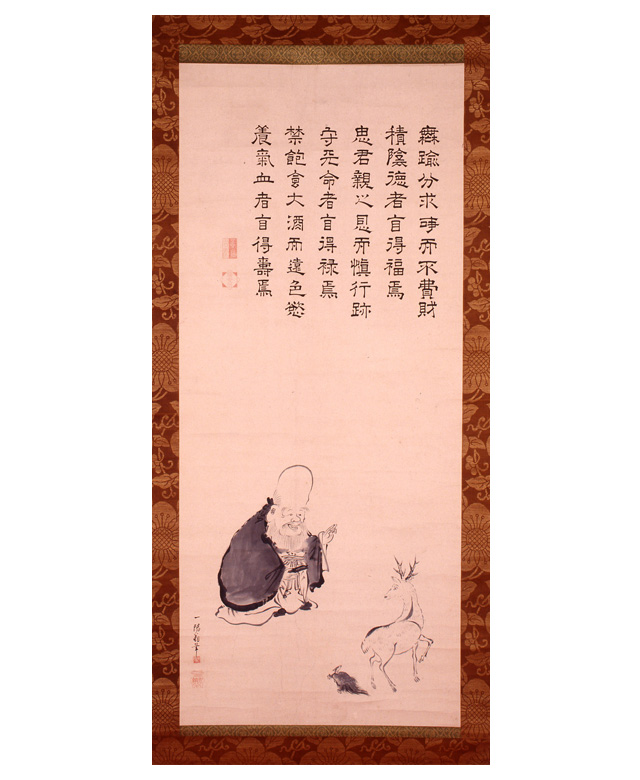 無踰分求事而不費財
積陰德者宜得福焉
忠君親之恩而慎行跡
守天命者宜得禄焉
禁飽食大酒而遠色慾
養氣血者宜得壽焉
一筆